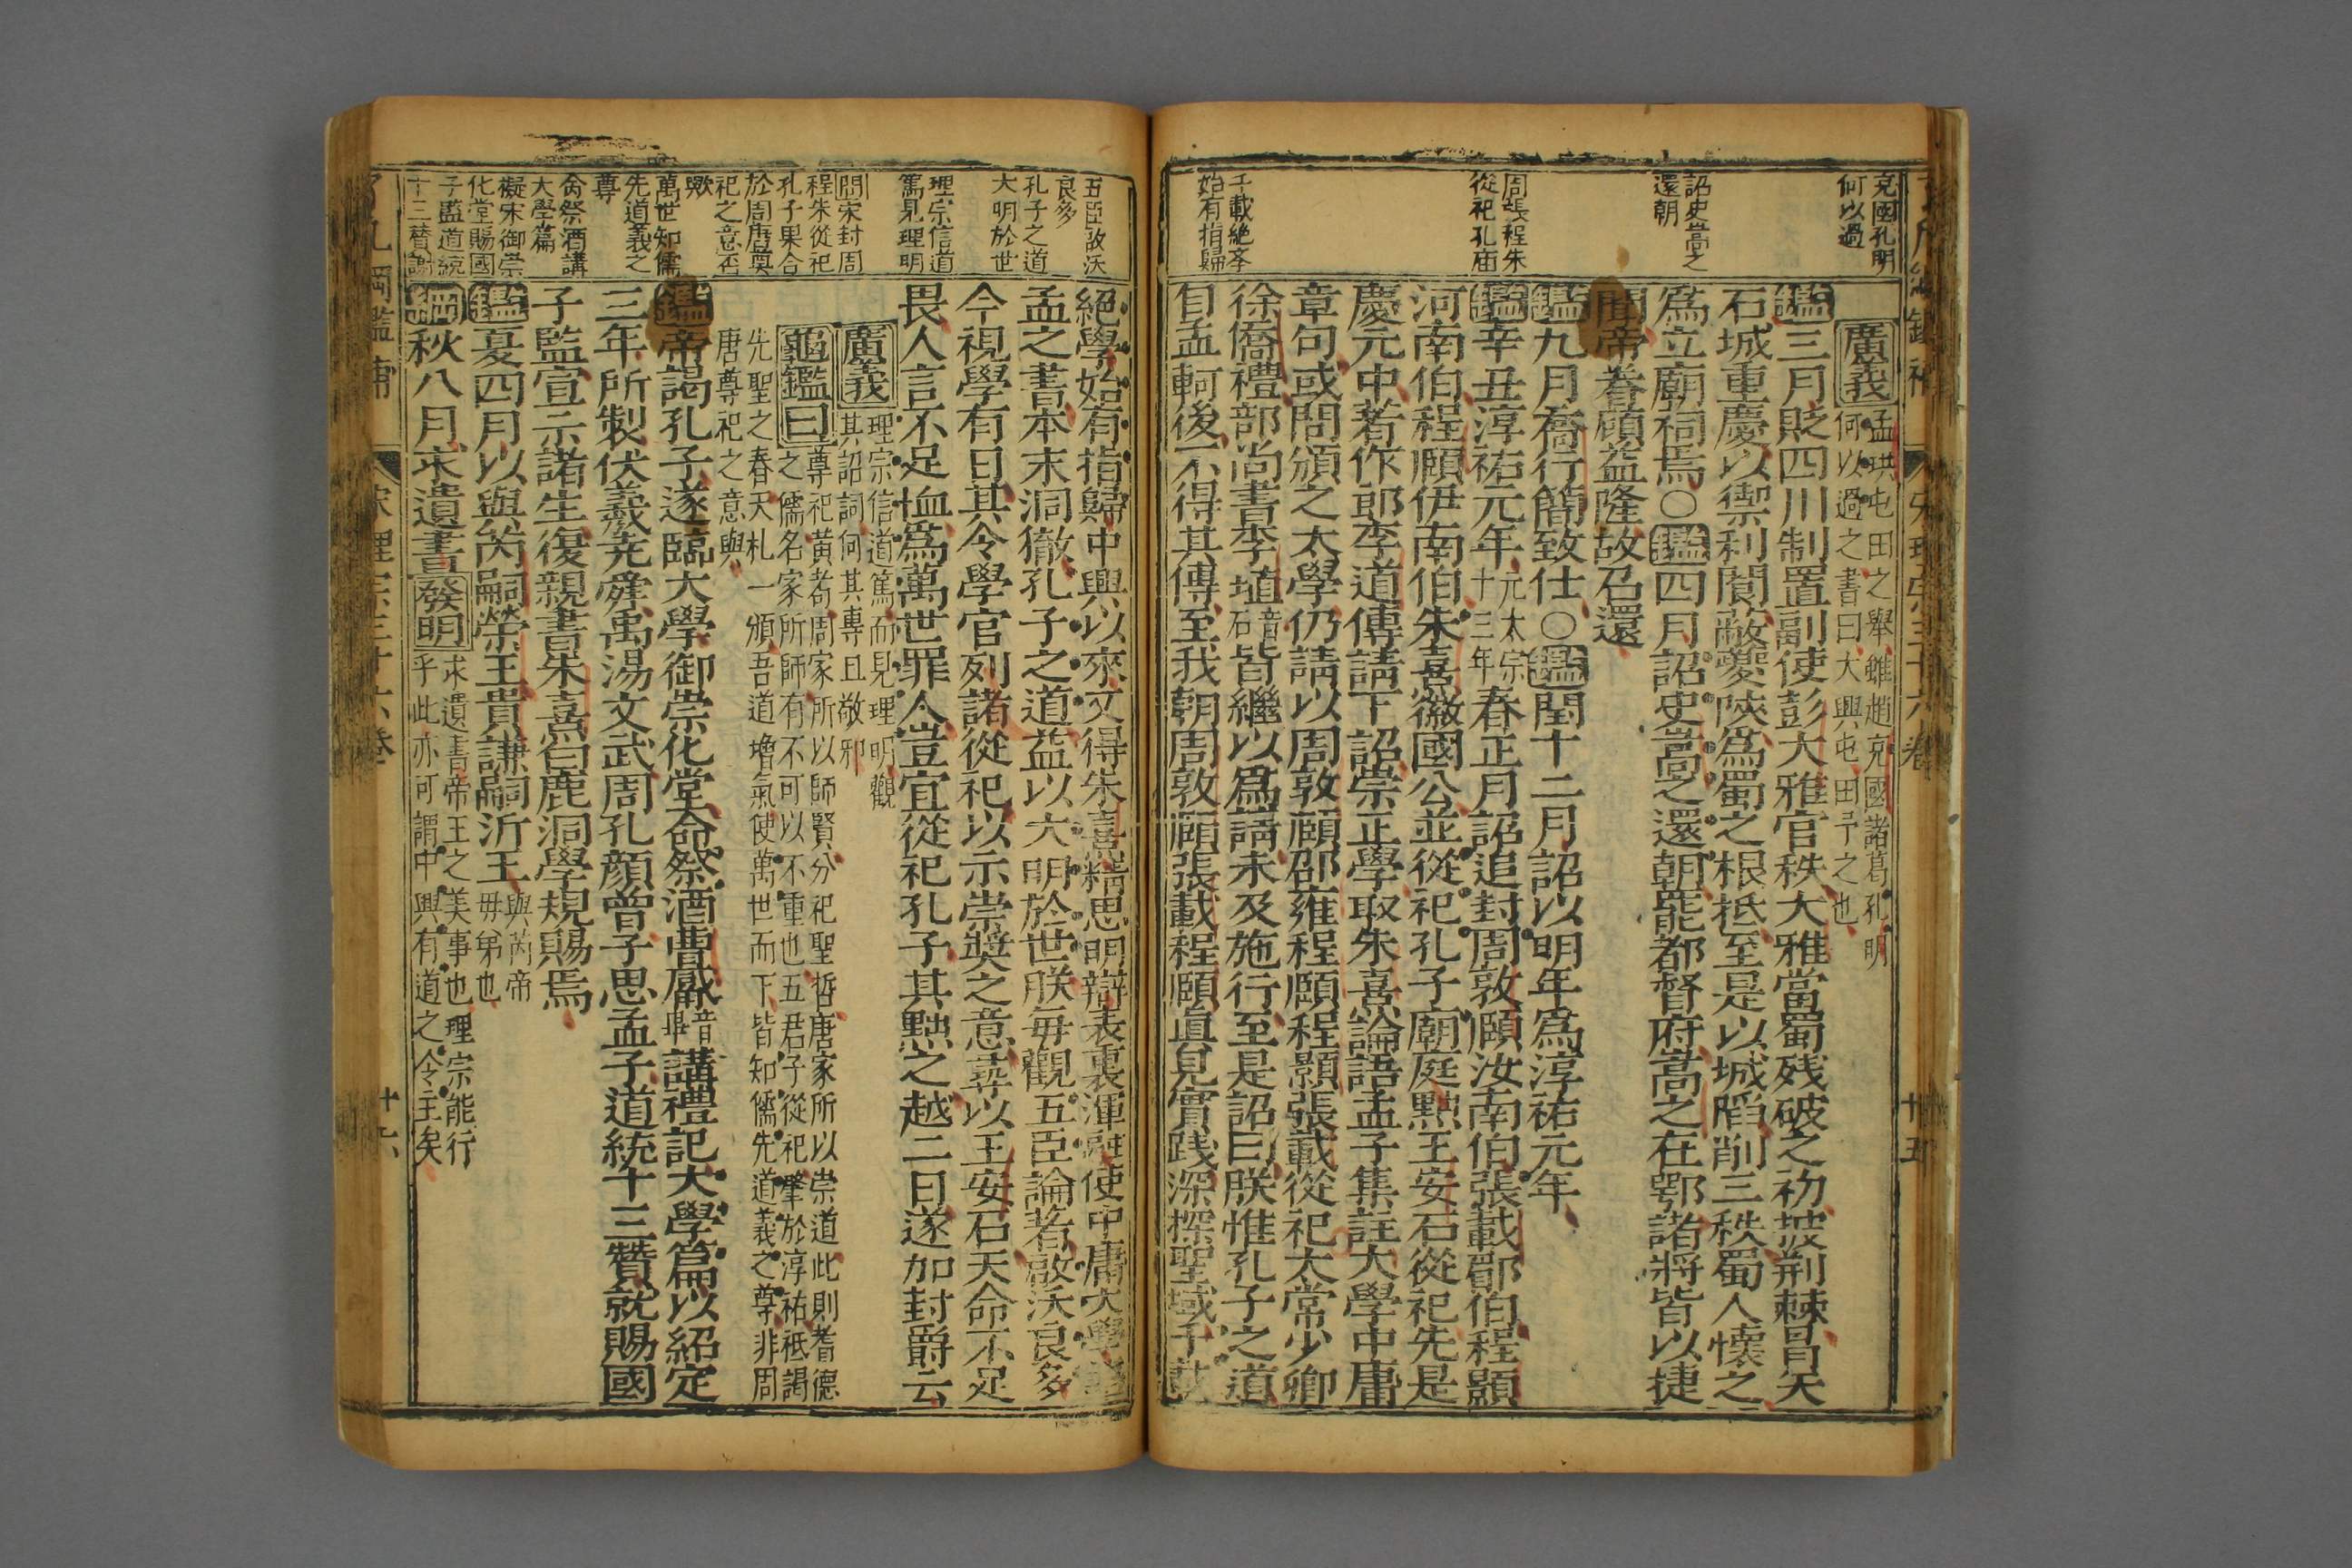 克國孔明
何以過
詔史嵩之
還朝
周張程朱
從祀孔庙
千載絶李
始有指歸
廣義
孟珙屯田之舉雖趙克國諸葛孔明
何以過之書曰大興屯田予之也
鑑三月貶四川制置副使彭大雅官秩大雅當蜀残破之初披荆棘冒矢
石城重慶以禦利閬蔽夔陝爲蜀之根抵至是以城陷削三秩蜀人懷之
爲立廟祠焉○鑑四月詔史嵩之還朝罷都督府嵩之在鄂諸將皆以捷
聞帝眷顧益隆故召還
鑑九月喬行簡致仕○鑑閏十二月詔以明年爲淳祐元年
鑑辛丑淳祐元年
元太宗
十三年
春正月詔追封周敦頤汝南伯張載郿伯程顥
河南伯程頤伊南伯朱熹徽國公並從祀孔子廟庭黜王安石從祀先是
慶元中著作郎李道傳請下詔崇正學取朱熹論語孟子集註大學中庸
章句或問頒之太學仍請以周敦頤邵雍程頤程顥張載從祀太常少卿
徐僑禮部尚書李埴
音
石
皆繼以爲請未及施行至是詔曰朕惟孔子之道
自孟軻後不得其傳至我朝周敦頤張載程頤眞見實踐深探聖域千載
十五
五臣啟沃
良多
孔子之道
大明於世
理宗信道
篤見理明
問宋封周
程朱從祀
孔子果合
於周唐奠
祀之意否
歟
萬世知儒
先道義之
尊
命祭酒講
大學篇
擬宋御崇
化堂賜國
子監道統
十三賛謝
絶學始有指歸中興以來又得朱熹精思明辯表裏渾融使中庸大學語
孟之書本末洞徹孔子之道益以大明於世朕每觀五臣論著啟沃良多
今視學有日其令學官列諸從祀以示崇奬之意尋以王安石天命不足
畏人言不足恤爲萬世罪人豈宜從祀孔子其黜之越二日遂加封爵云
廣義
理宗信道篤而見理明觀
其詔詞何其專且敬邪
龜鑑曰
尊祀黃耈周家所以師賢分祀聖哲唐家所以崇道此則耆德
之儒名家所師有不可以不重也五君子從祀肇於淳祐祗謁
先聖之春天札一頒吾道增氣使萬世而下皆知儒先道義之尊非周
唐尊祀之意與
鑑帝謁孔子遂臨大學御崇化堂命祭酒曹觱
音
畢
講禮記大學篇以紹定
三年所製伏羲堯舜禹湯文武周孔顔曾子思孟子道統十三贊就賜國
子監宣示諸生復親書朱熹白鹿洞學規賜焉
鑑夏四月以與芮嗣榮王貴謙嗣沂王
與芮帝
毋弟也
綱秋八月求遺書
發明
求遺書帝王之美事也理宗能行
乎此亦可謂中興有道之令主矣
宋理宗三十六卷
十六